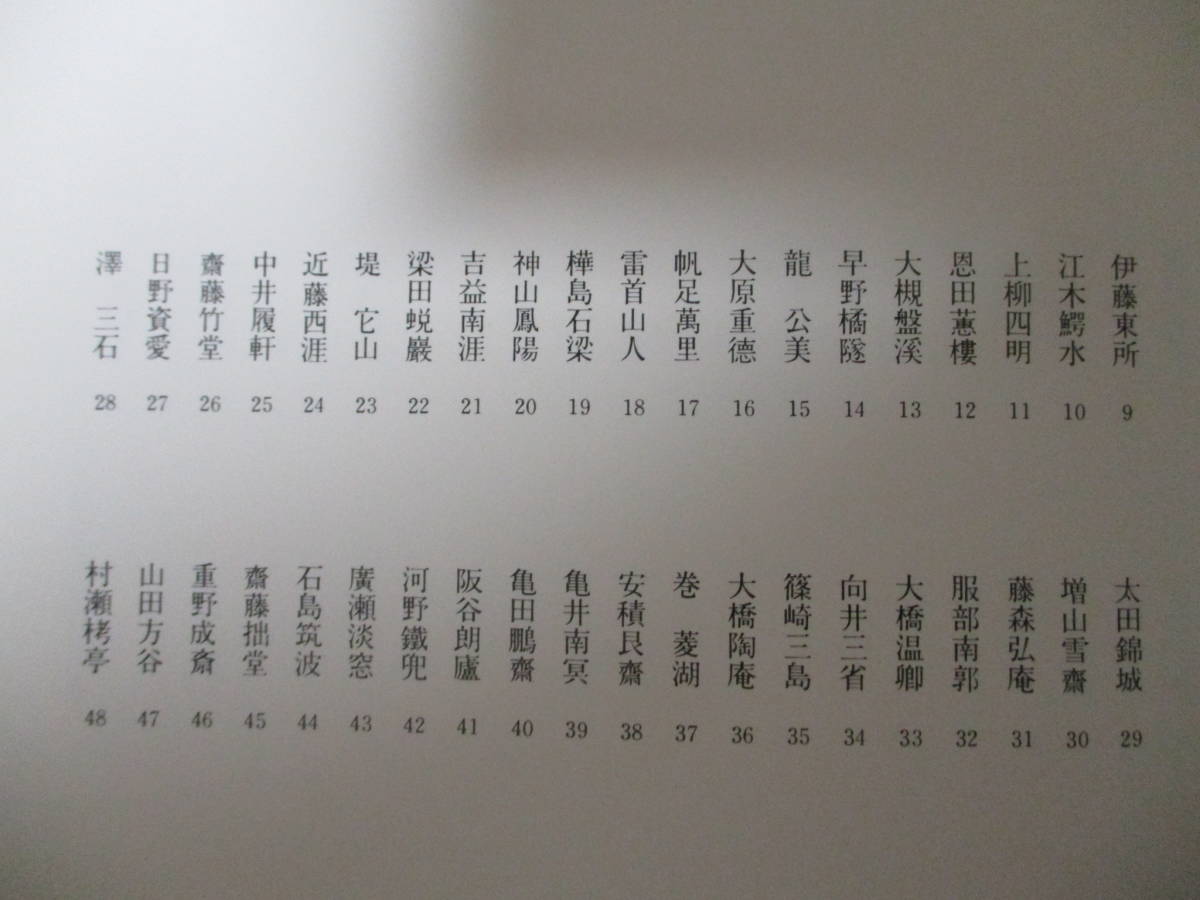 伊藤東所 9
江木鰐水 10
上柳四明 11
恩田蕙樓 12
大槻盤溪 13
早野橘隧 14
龍 公美 15
大原重德 16
帆足萬里 17
雷首山人 18
樺島石梁 19
神山鳳陽 20
吉益南涯 21
梁田蜕巖 22
堤 它山 23
近藤西涯 24
中井履軒 25
齋藤竹堂 26
日野資愛 27
澤 三石 28
太田錦城 29
増山雪齋 30
藤森弘庵 31
服部南郭 32
大橋温卿 33
向井三省 34
篠崎三島 35
大橋陶庵 36
巻 菱湖 37
安積艮齋 38
亀井南冥 39
亀田鵬齋 40
阪谷朗廬 41
河野鐵兜 42
廣瀬淡窓 43
石島筑波 44
齋藤拙堂 45
重野成斎 46
山田方谷 47
村瀬栲亭 48